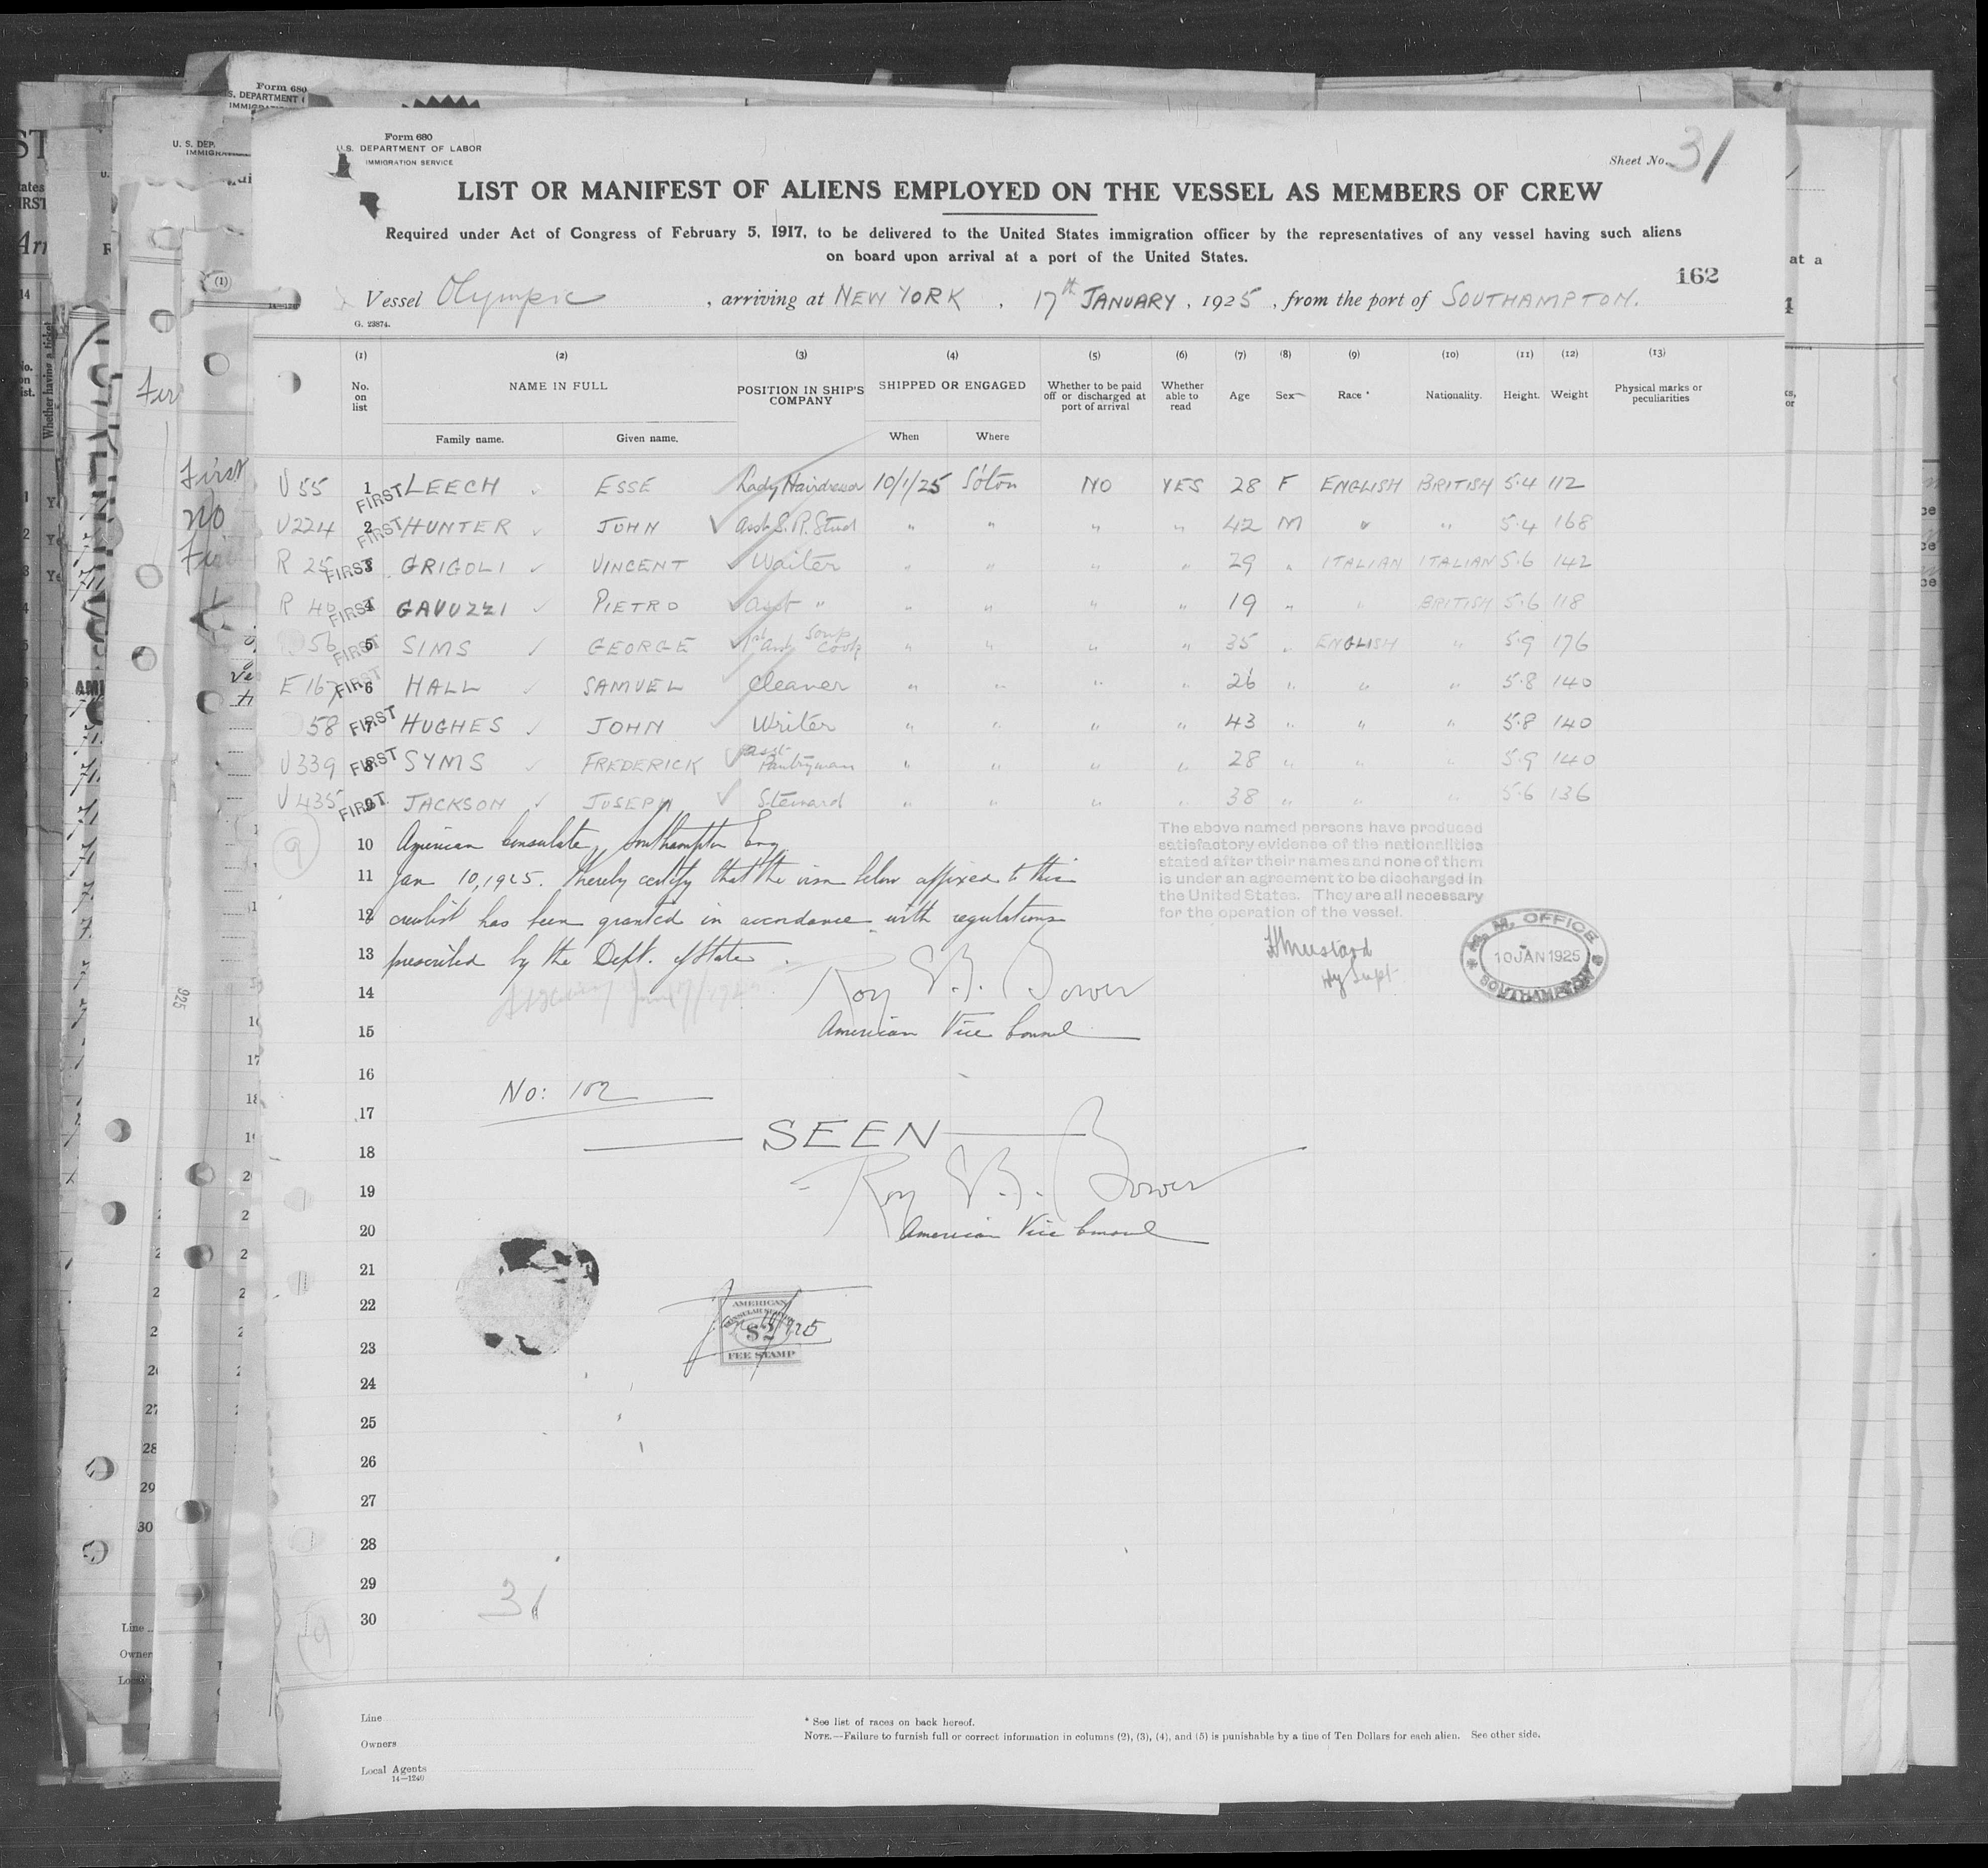 Form 680
U.S. DEPARTMENT OF LABOR
IMMIGRATION SERVICE
Sheet No. 31
LIST OR MANIFEST OF ALIENS EMPLOYED ON THE VESSEL AS MEMBERS OF CREW
Required under Act of Congress of February 5, 1917, to be delivered to the United States immigration officer by the representatives of any vessel having such aliens
on board upon arrival at a port of the United States.
162
Vessel Olympic, arriving at NEW YORK, 17th JANUARY, 1925, from the port of SOUTHAMPTON.
G. 23874.
(1) (2) (3) (4) (5) (6) (7) (8) (9) (10) (11) (12) (13)
No. on list NAME IN FULL POSITION IN SHIP'S COMPANY SHIPPED OR ENGAGED Whether to be paid off or discharged at port of arrival Whether able to read Age Sex Race * Nationality. Height. Weight Physical marks or peculiarities
Family name. Given name. When Where
U 55 1 FIRST LEECH ESSE Lady Hairdresser 10/1/25 S'oton NO YES 28 F ENGLISH BRITISH 5.4 112
U 224 2 FIRST HUNTER JOHN asst S.R. Stwd " " " " 42 M " " 5.4 168
R 25 FIRST 3 GRIGOLI VINCENT Waiter " " " " 29 " ITALIAN ITALIAN 5.6 142
R 40 FIRST 4 GAVUZZI PIETRO asst " " " " " 19 " " BRITISH 5.6 118
56 FIRST 5 SIMS GEORGE 1st asst Soup Cook " " " " 35 " ENGLISH " 5.9 176
E 167 FIRST 6 HALL SAMUEL Cleaner " " " " 26 " " " 5.8 140
58 FIRST 7 HUGHES JOHN Writer " " " " 43 " " " 5.8 140
U 339 FIRST 8 SYMS FREDERICK asst Pantryman " " " " 28 " " " 5.9 140
U 435 FIRST 9 JACKSON JOSEPH Steward " " " " 38 " " " 5.6 136
9
10 American Consulate, Southampton Eng
11 Jan 10, 1925. I hereby certify that the visa below affixed to this
12 crewlist has been granted in accordance with regulations
13 prescribed by the Dept. of State.
The above named persons have produced
satisfactory evidence of the nationalities
stated after their names and none of them
is under an agreement to be discharged in
the United States. They are all necessary
for the operation of the vessel.
M. M. OFFICE
10 JAN 1925
SOUTHAMPTON
14 Roy E. B. Bower
15 American Vice Consul
16
No: 102
17
SEEN
18
19 Roy E. B. Bower
20 American Vice Consul
21
22
AMERICAN
CONSULAR SERVICE
$2
FEE STAMP
23
24
25
26
27
28
29
31
30
9
Line
Owners
Local Agents
14—1240
* See list of races on back hereof.
NOTE.—Failure to furnish full or correct information in columns (2), (3), (4), and (5) is punishable by a fine of Ten Dollars for each alien. See other side.